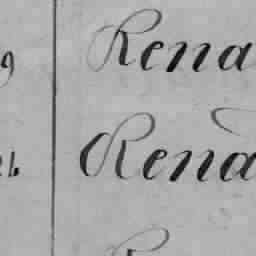 9 Rena
Rena